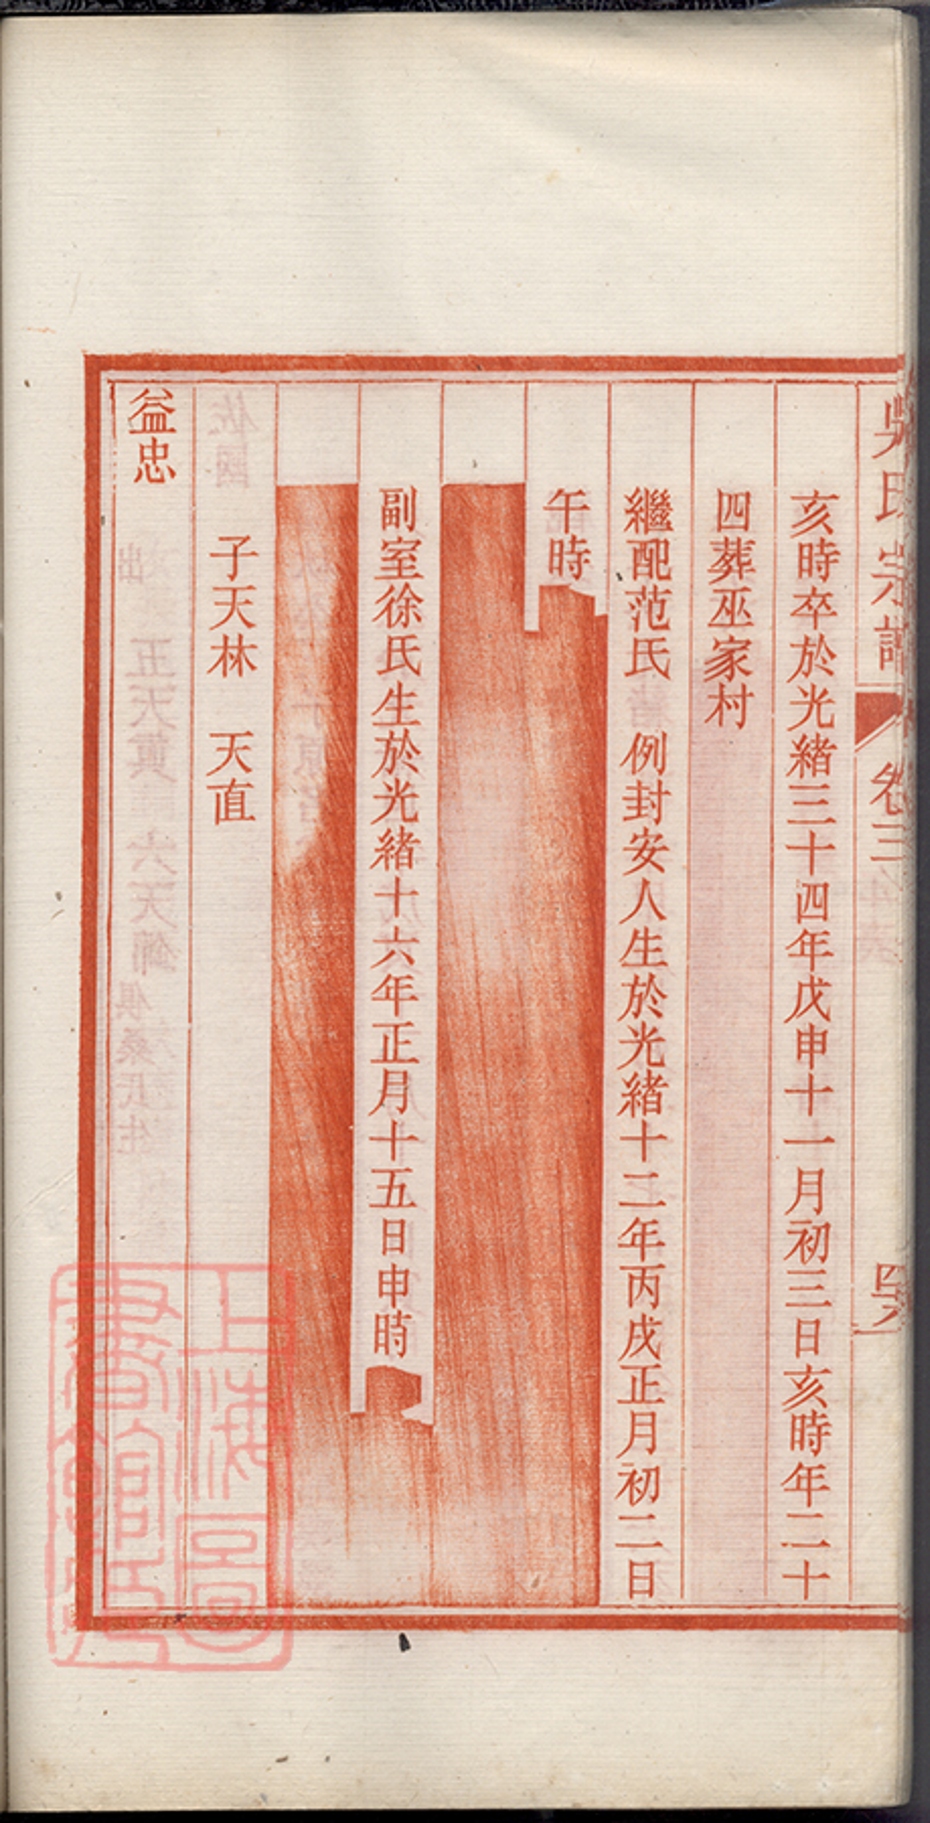 吳氏宗譜
卷三
亥時卒於光緒三十四年戊申十一月初三日亥時年二十
四葬巫家村
繼配范氏 例封安人生於光緒十二年丙戌正月初二日
午時
副室徐氏生於光緒十六年正月十五日申時
子天林 天直
益忠
上海圖
書館藏